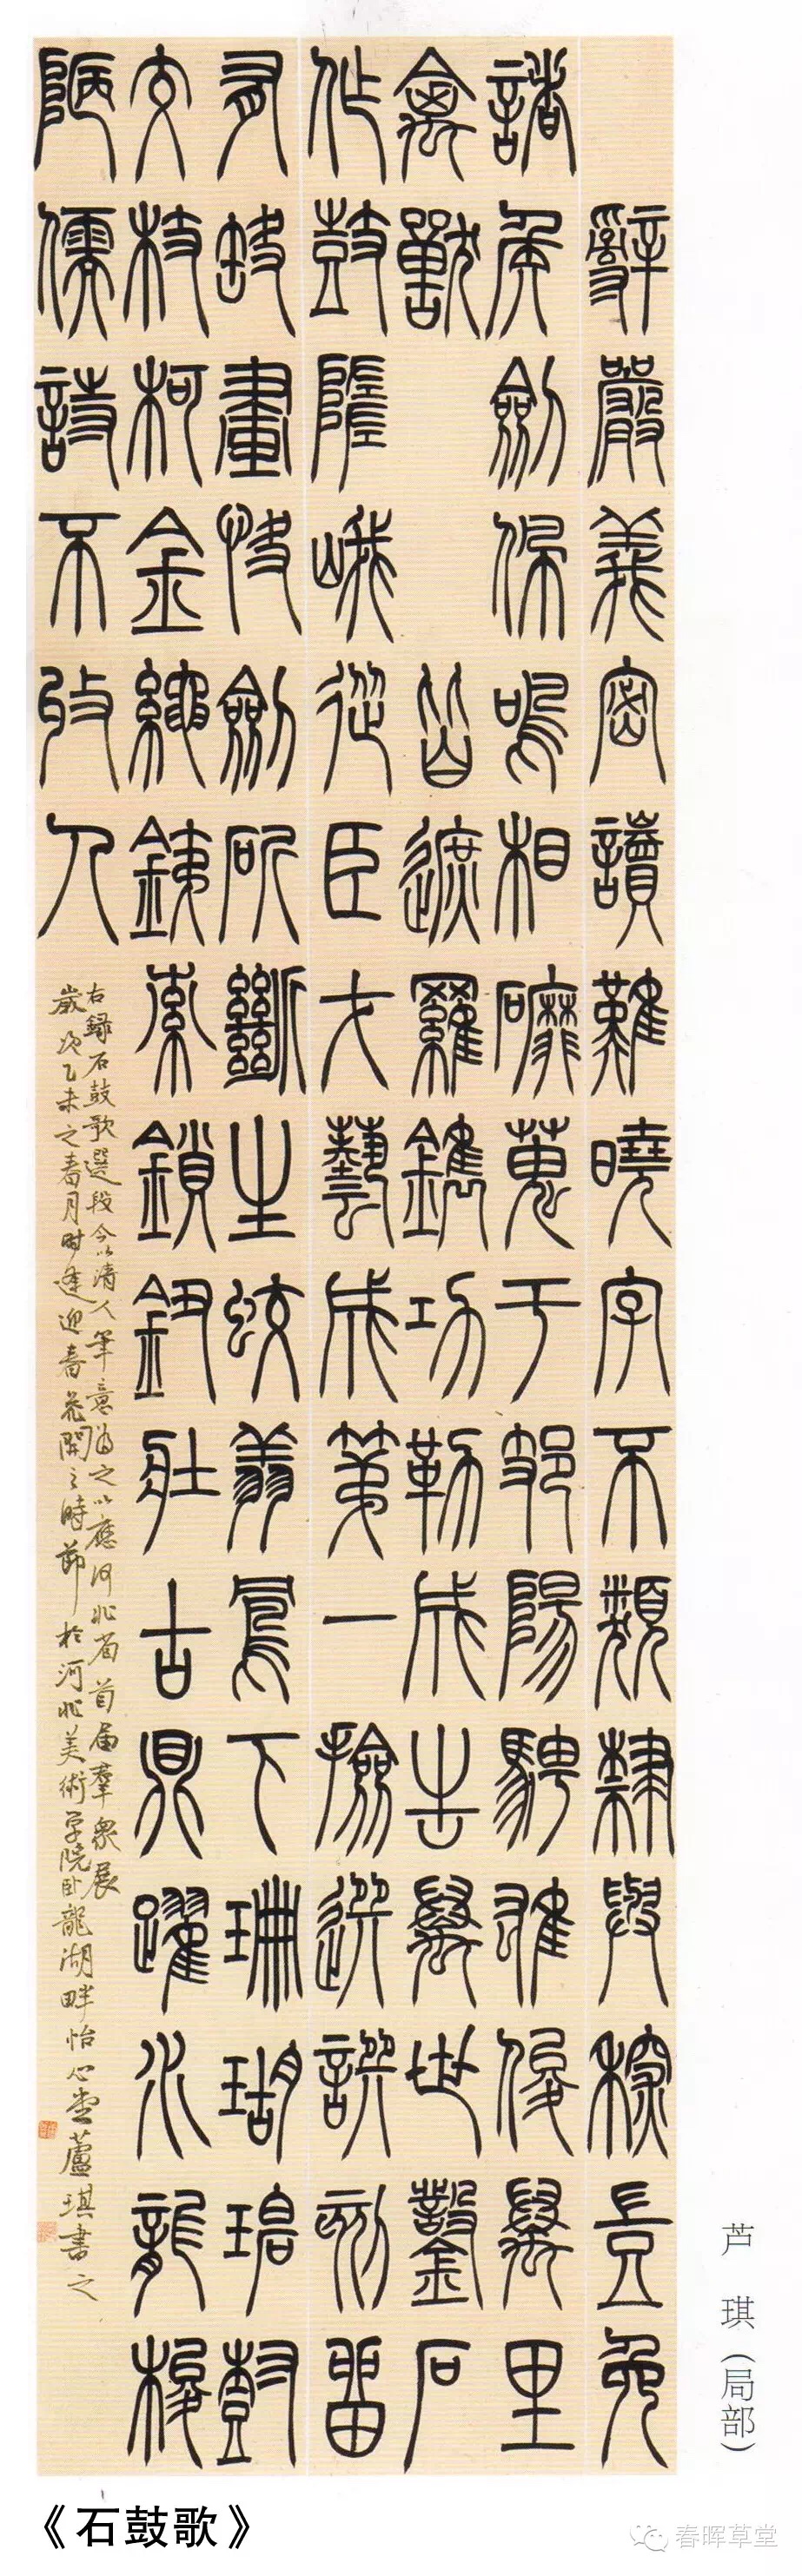 辭嚴義密讀難曉字不類隸與豈免
諸侯劍佩鳴相磨蒐于岐陽騁雄俊萬里
禽獸皆遮羅鐫功勒成告萬世鑿石
作鼓隳峨從臣才藝咸第一撿選撰刻留
有缺畫快劍斫斷生蛟翔鳳下珊瑚碧樹
交枝柯金繩鐵索鎖鈕壯古鼎躍水龍梭
陋儒詩不收入
右錄石鼓歌選段今以清人筆意為之以應河北省首届羣衆展
歲次乙未之春月時逢迎春花開之時節於河北美術学院卧龍湖畔怡心堂蘆琪書之
芦琪（局部）
《石鼓歌》
春晖草堂